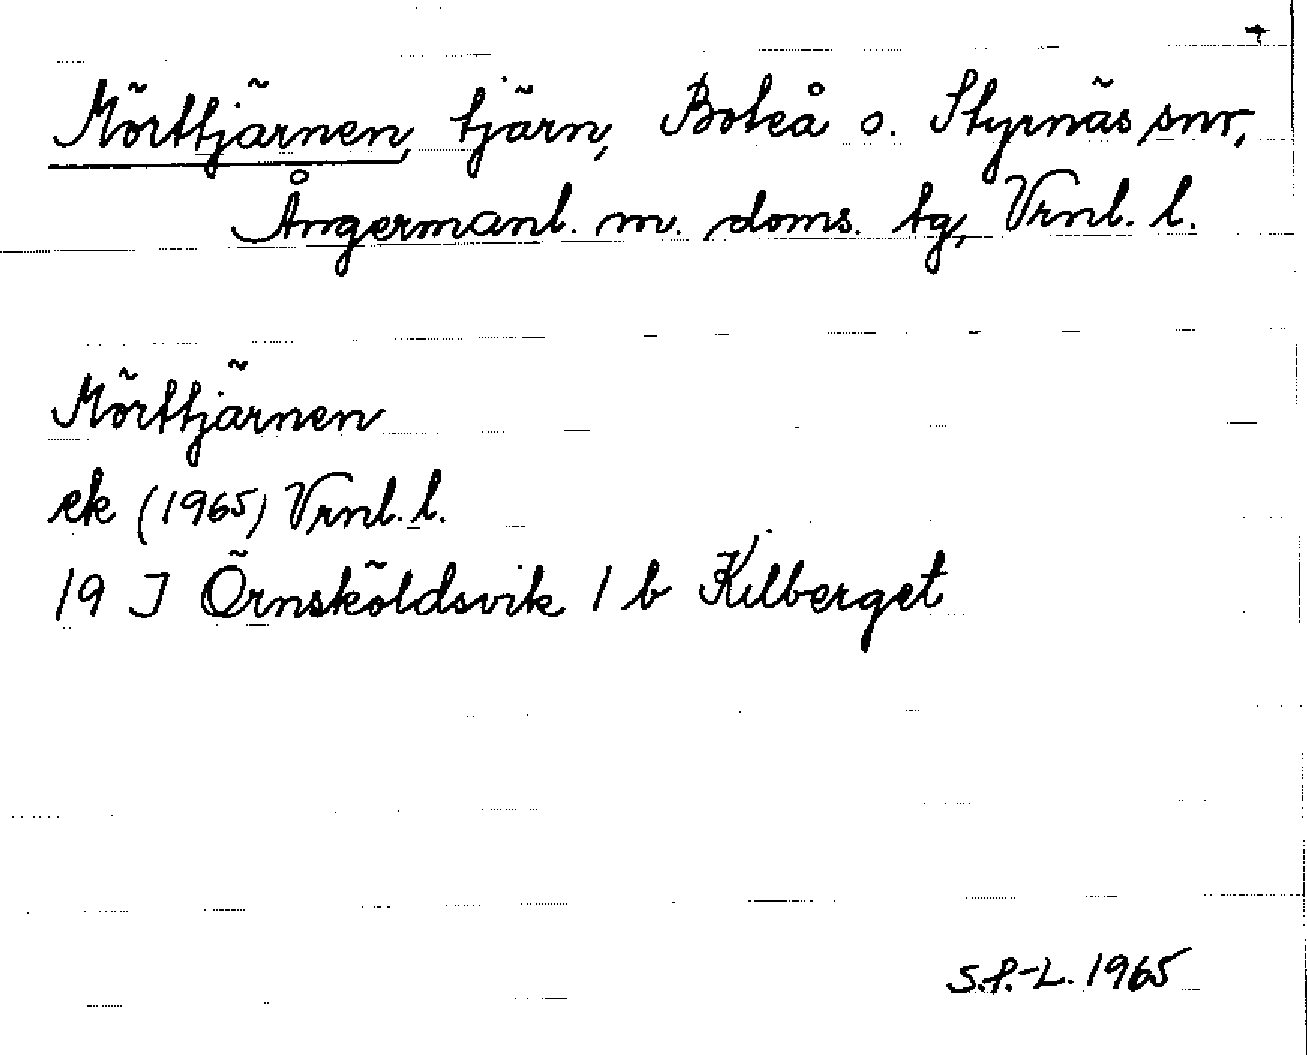 Mörttjärnen, tjärn, Boteå o. Styrnäs snr,
Ångermanl. m. doms. tg, Vrnl. l.
Mörttjärnen
ek (1965) Vrnl. l.
19 J Örnsköldsvik 1 b Kilberget
S.P.-L. 1965